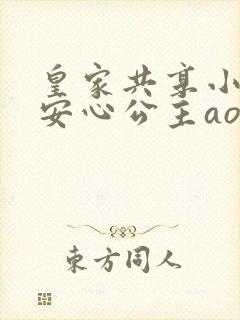 皇家共享小
安心公主ao
東方同人